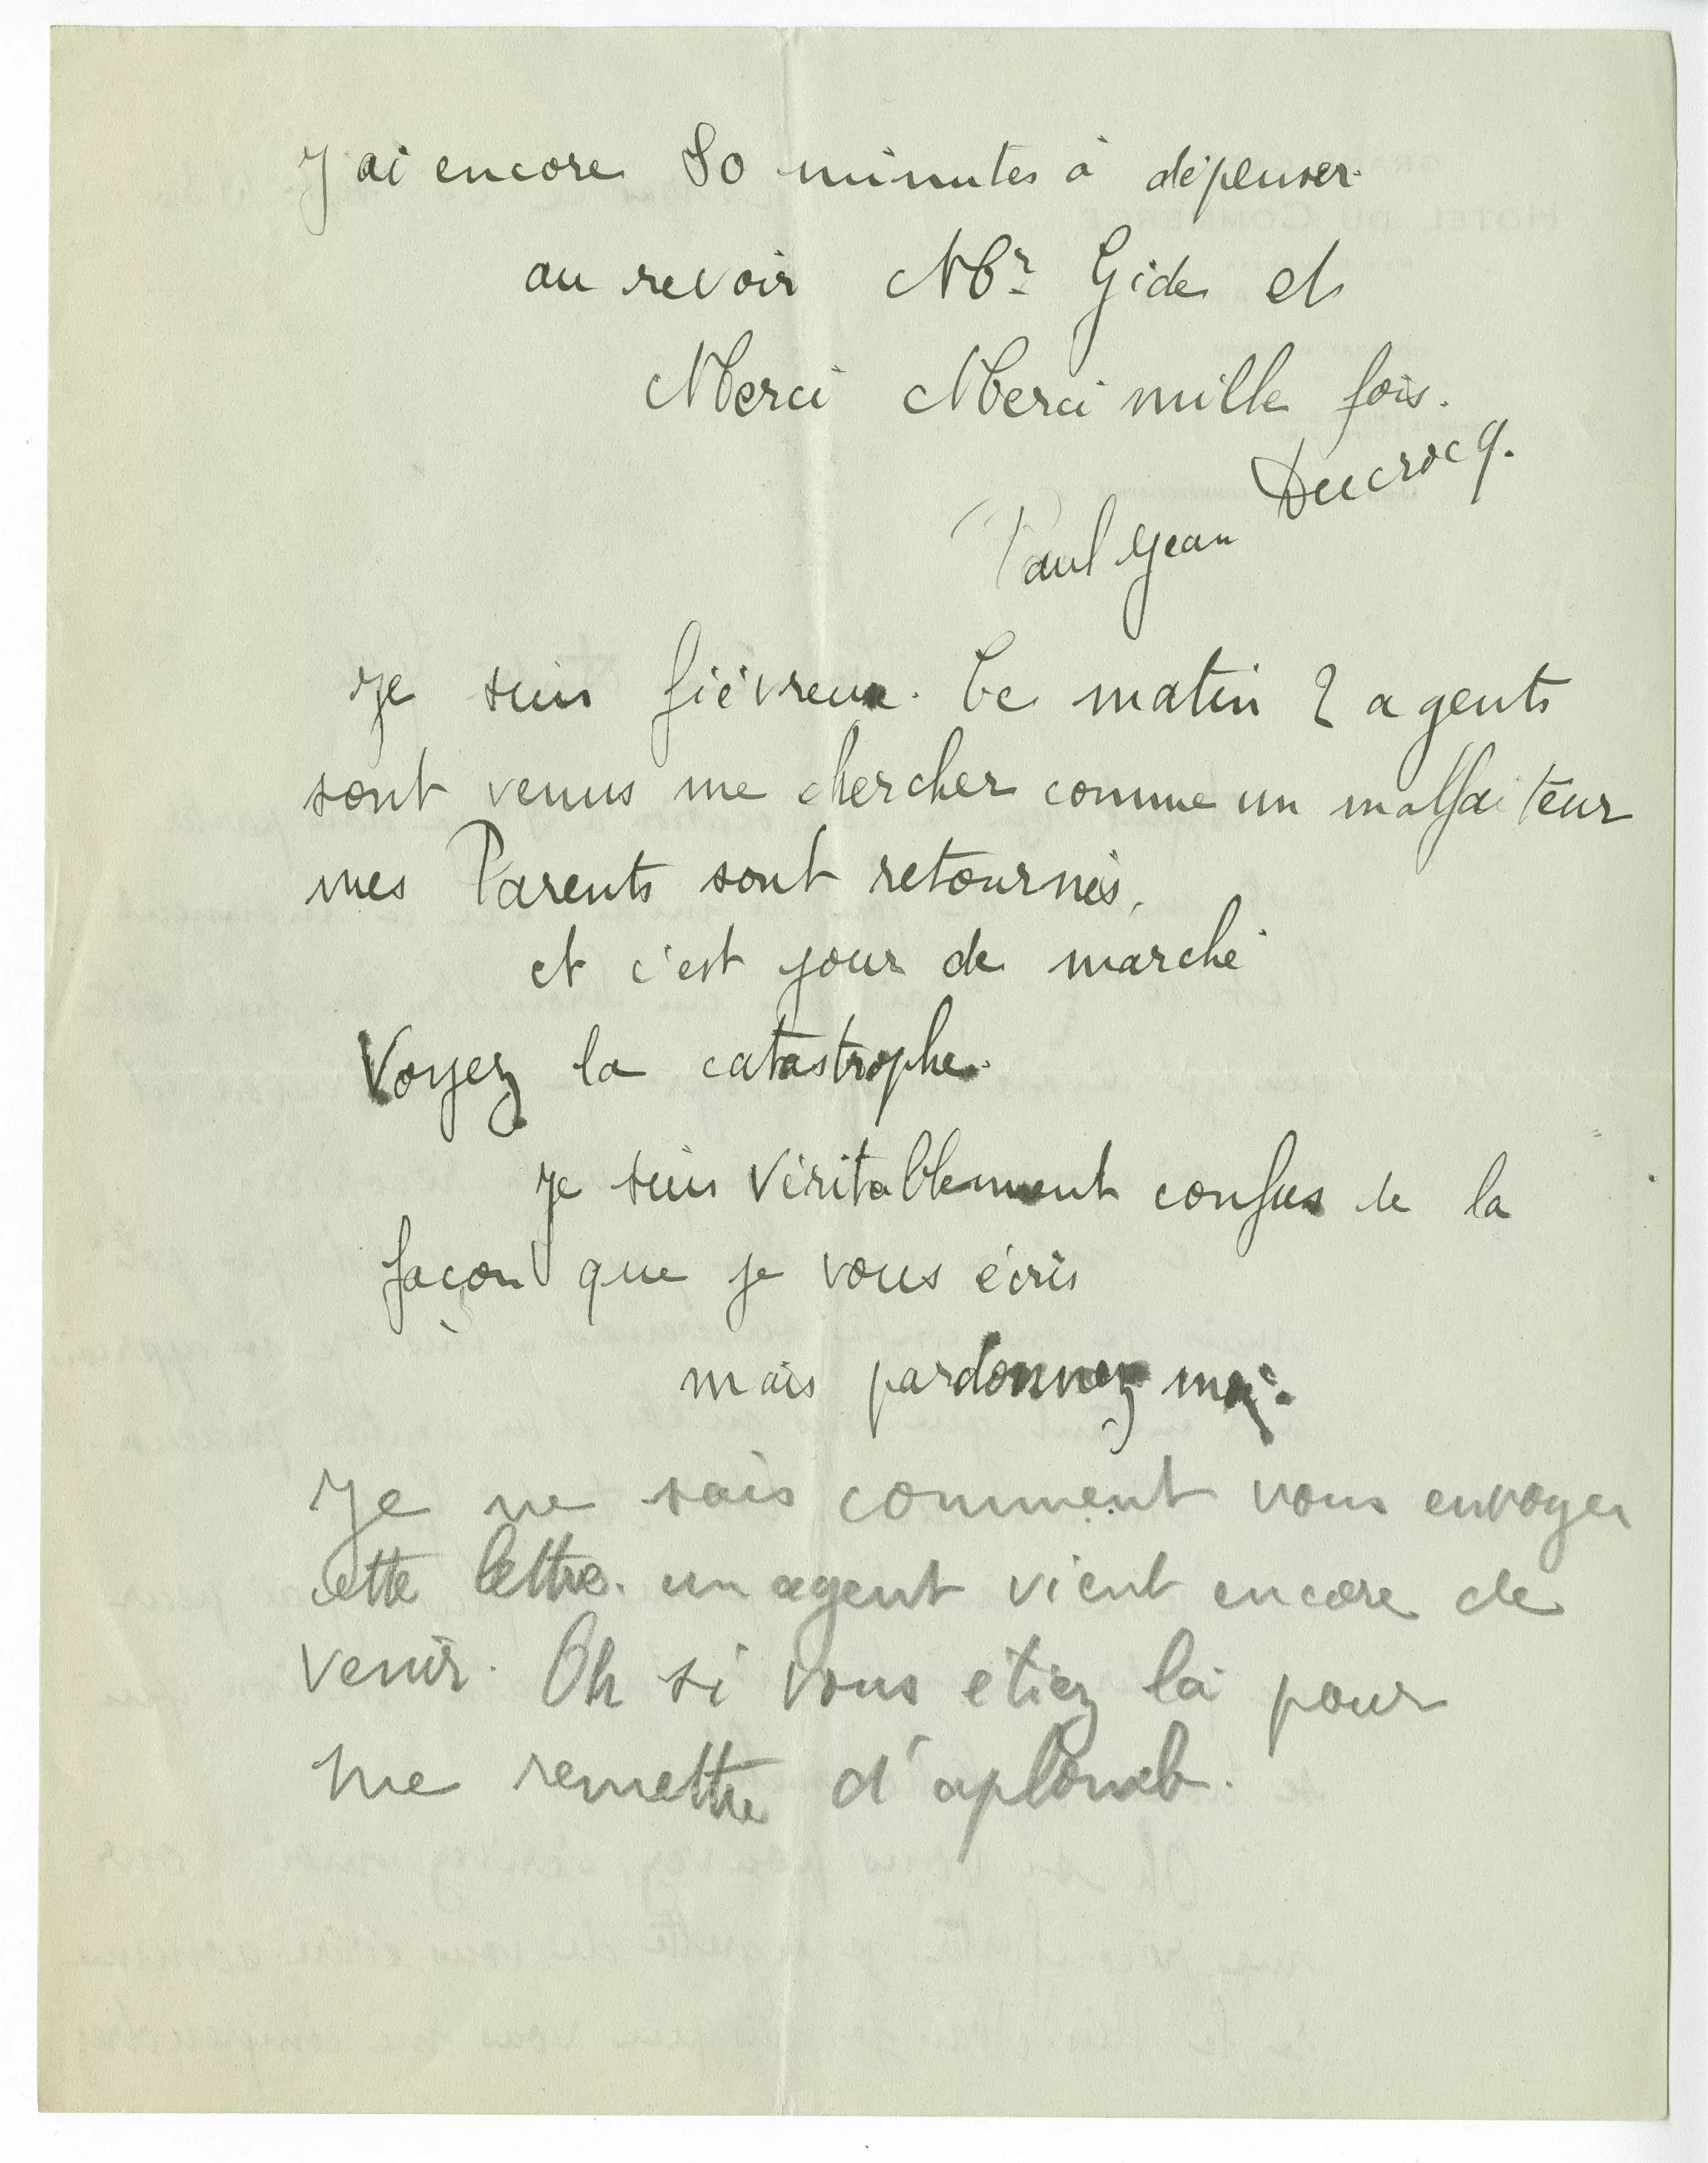 J'ai encore 80 minutes à dépenser
au revoir Mr Gide et
Merci Merci mille fois.
Paul Jean Ducrocq.
Je suis fiévreux. Ce matin 2 agents
sont venus me chercher comme un malfaiteur
mes Parents sont retournés,
et c'est jour de marché
Voyez la catastrophe.
Je suis véritablement confus de la
façon que je vous écris
mais pardonnez moi.
Je ne sais comment vous envoyer
cette lettre. un agent vient encore de
venir. Oh si vous etiez là pour
me remettre d'aplomb.
HOTEL DU COMMERCE